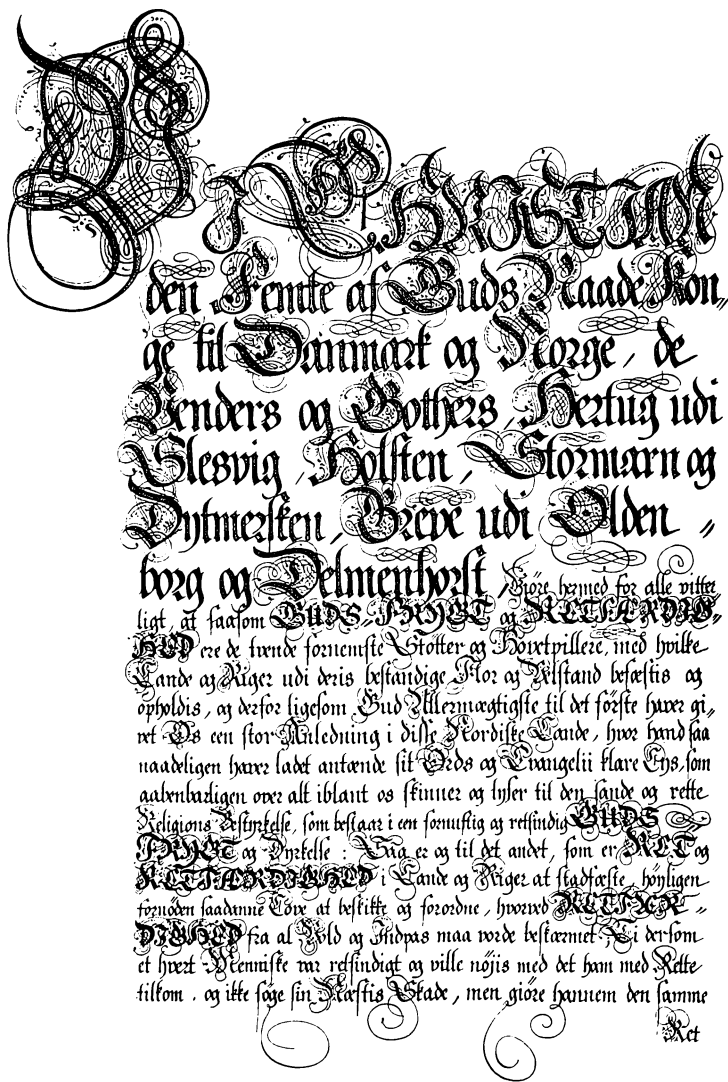 VI CHRISTIAN
den Femte af Guds Naade Kon„
ge til Danmark og Norge, de
Venders og Gothers, Hertug udi
Slesvig, Holsten, Stormarn og
Dytmersken, Greve udi Olden „
borg og Delmenhorst, Giøre hermed for alle vitter
ligt, at saasom GUDS-FRYGT og RETFÆRDIG-
HED ere de tvende fornemste Støtter og Hovetpillere, med hvilke
Lande og Riger udi deris bestandige Flor og Velstand befæstis og
opholdis, og derfor ligesom Gud Allermægtigste til det første haver gi„
vet Os een stor Anledning i disse Nordiske Lande, hvor hand saa
naadeligen haver ladet antænde sit Ords og Evangelii klare Lys, som
aabenbarligen over alt iblant os skinner og lyser til den sande og rette
Religions Bestyrkelse, som bestaar i een fornuftig og retsindig GUDS
FRYGT og Dyrkelse : Saa er og til det andet, som er RET og
RETFÆRDIGHED i Lande og Riger at stadfæste, højligen
fornøden saadanne Love at beskikke og forordne, hvorved RETFÆR „
DIGHED fra al Vold og Indpas maa vorde beskærmet. Ti dersom
et hvert Menniske var retsindigt og ville nøjis med det ham med Rette
tilkom, og ikke søge sin Næstis Skade, men giøre hannem den samme
Ret